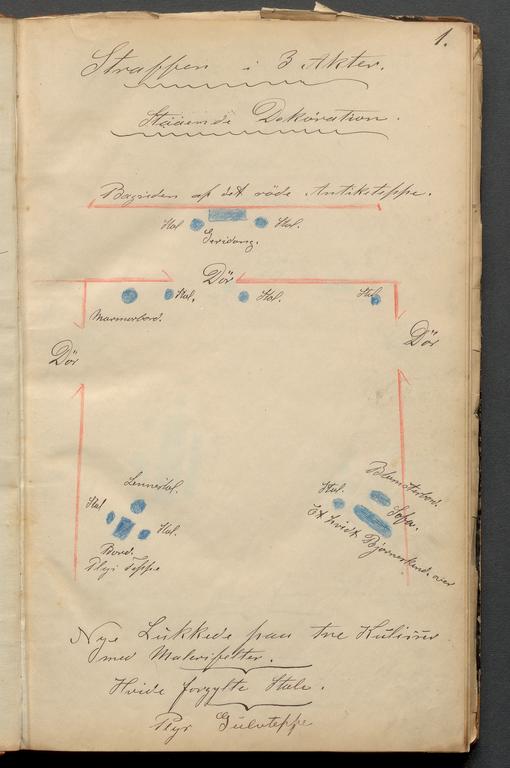 1.
Straffen i 3 Akter.
Stående Dekoration.
Bagsiden af det röde Antikteppe.
Stol Stol.
Geridong.
Dör
Stol, Stol. Stol
Marmorbord.
Dör Dör
Lennestol.
Stol Stol.
Bord.
Plysj Teppe
Blomsterbord.
Stol. Sofa.
Et hvidt Björneskind. over
Nye Lukkede paa tre Kulisser
med Malerifelter.
Hvide forgylte Stole.
Gulvteppe